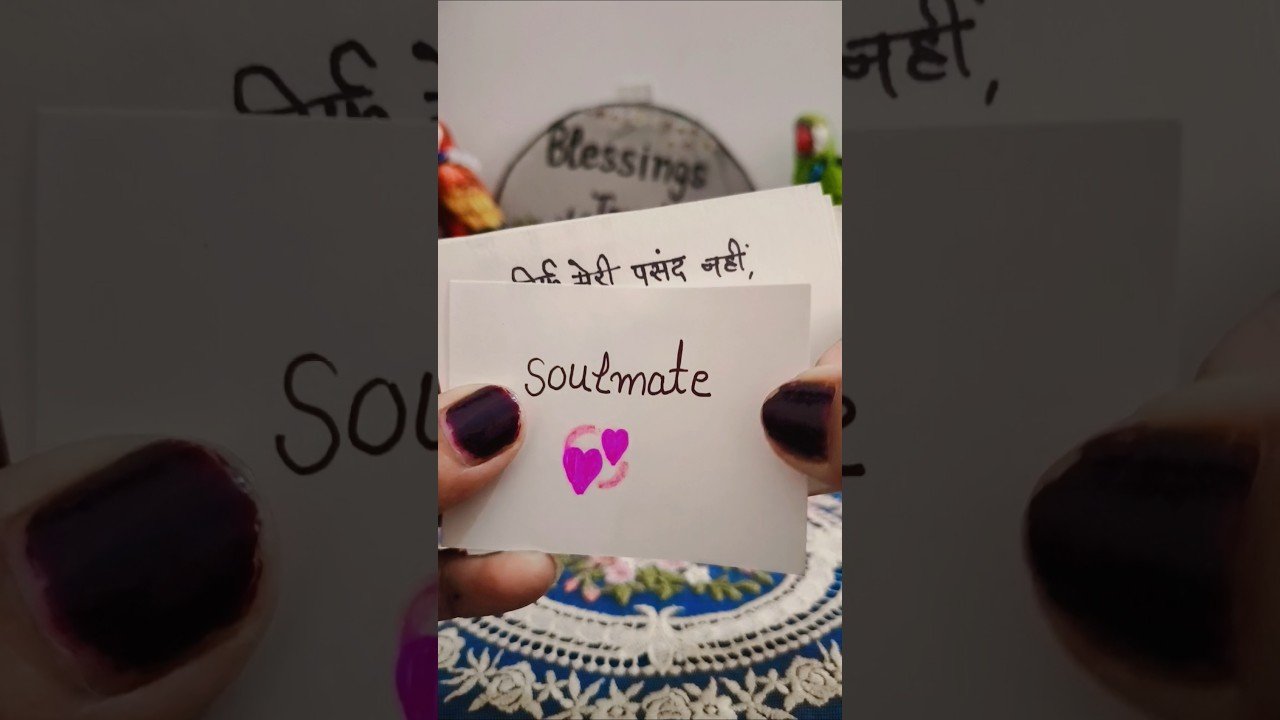 Blessings
मेरी पसंद नहीं,
Soulmate